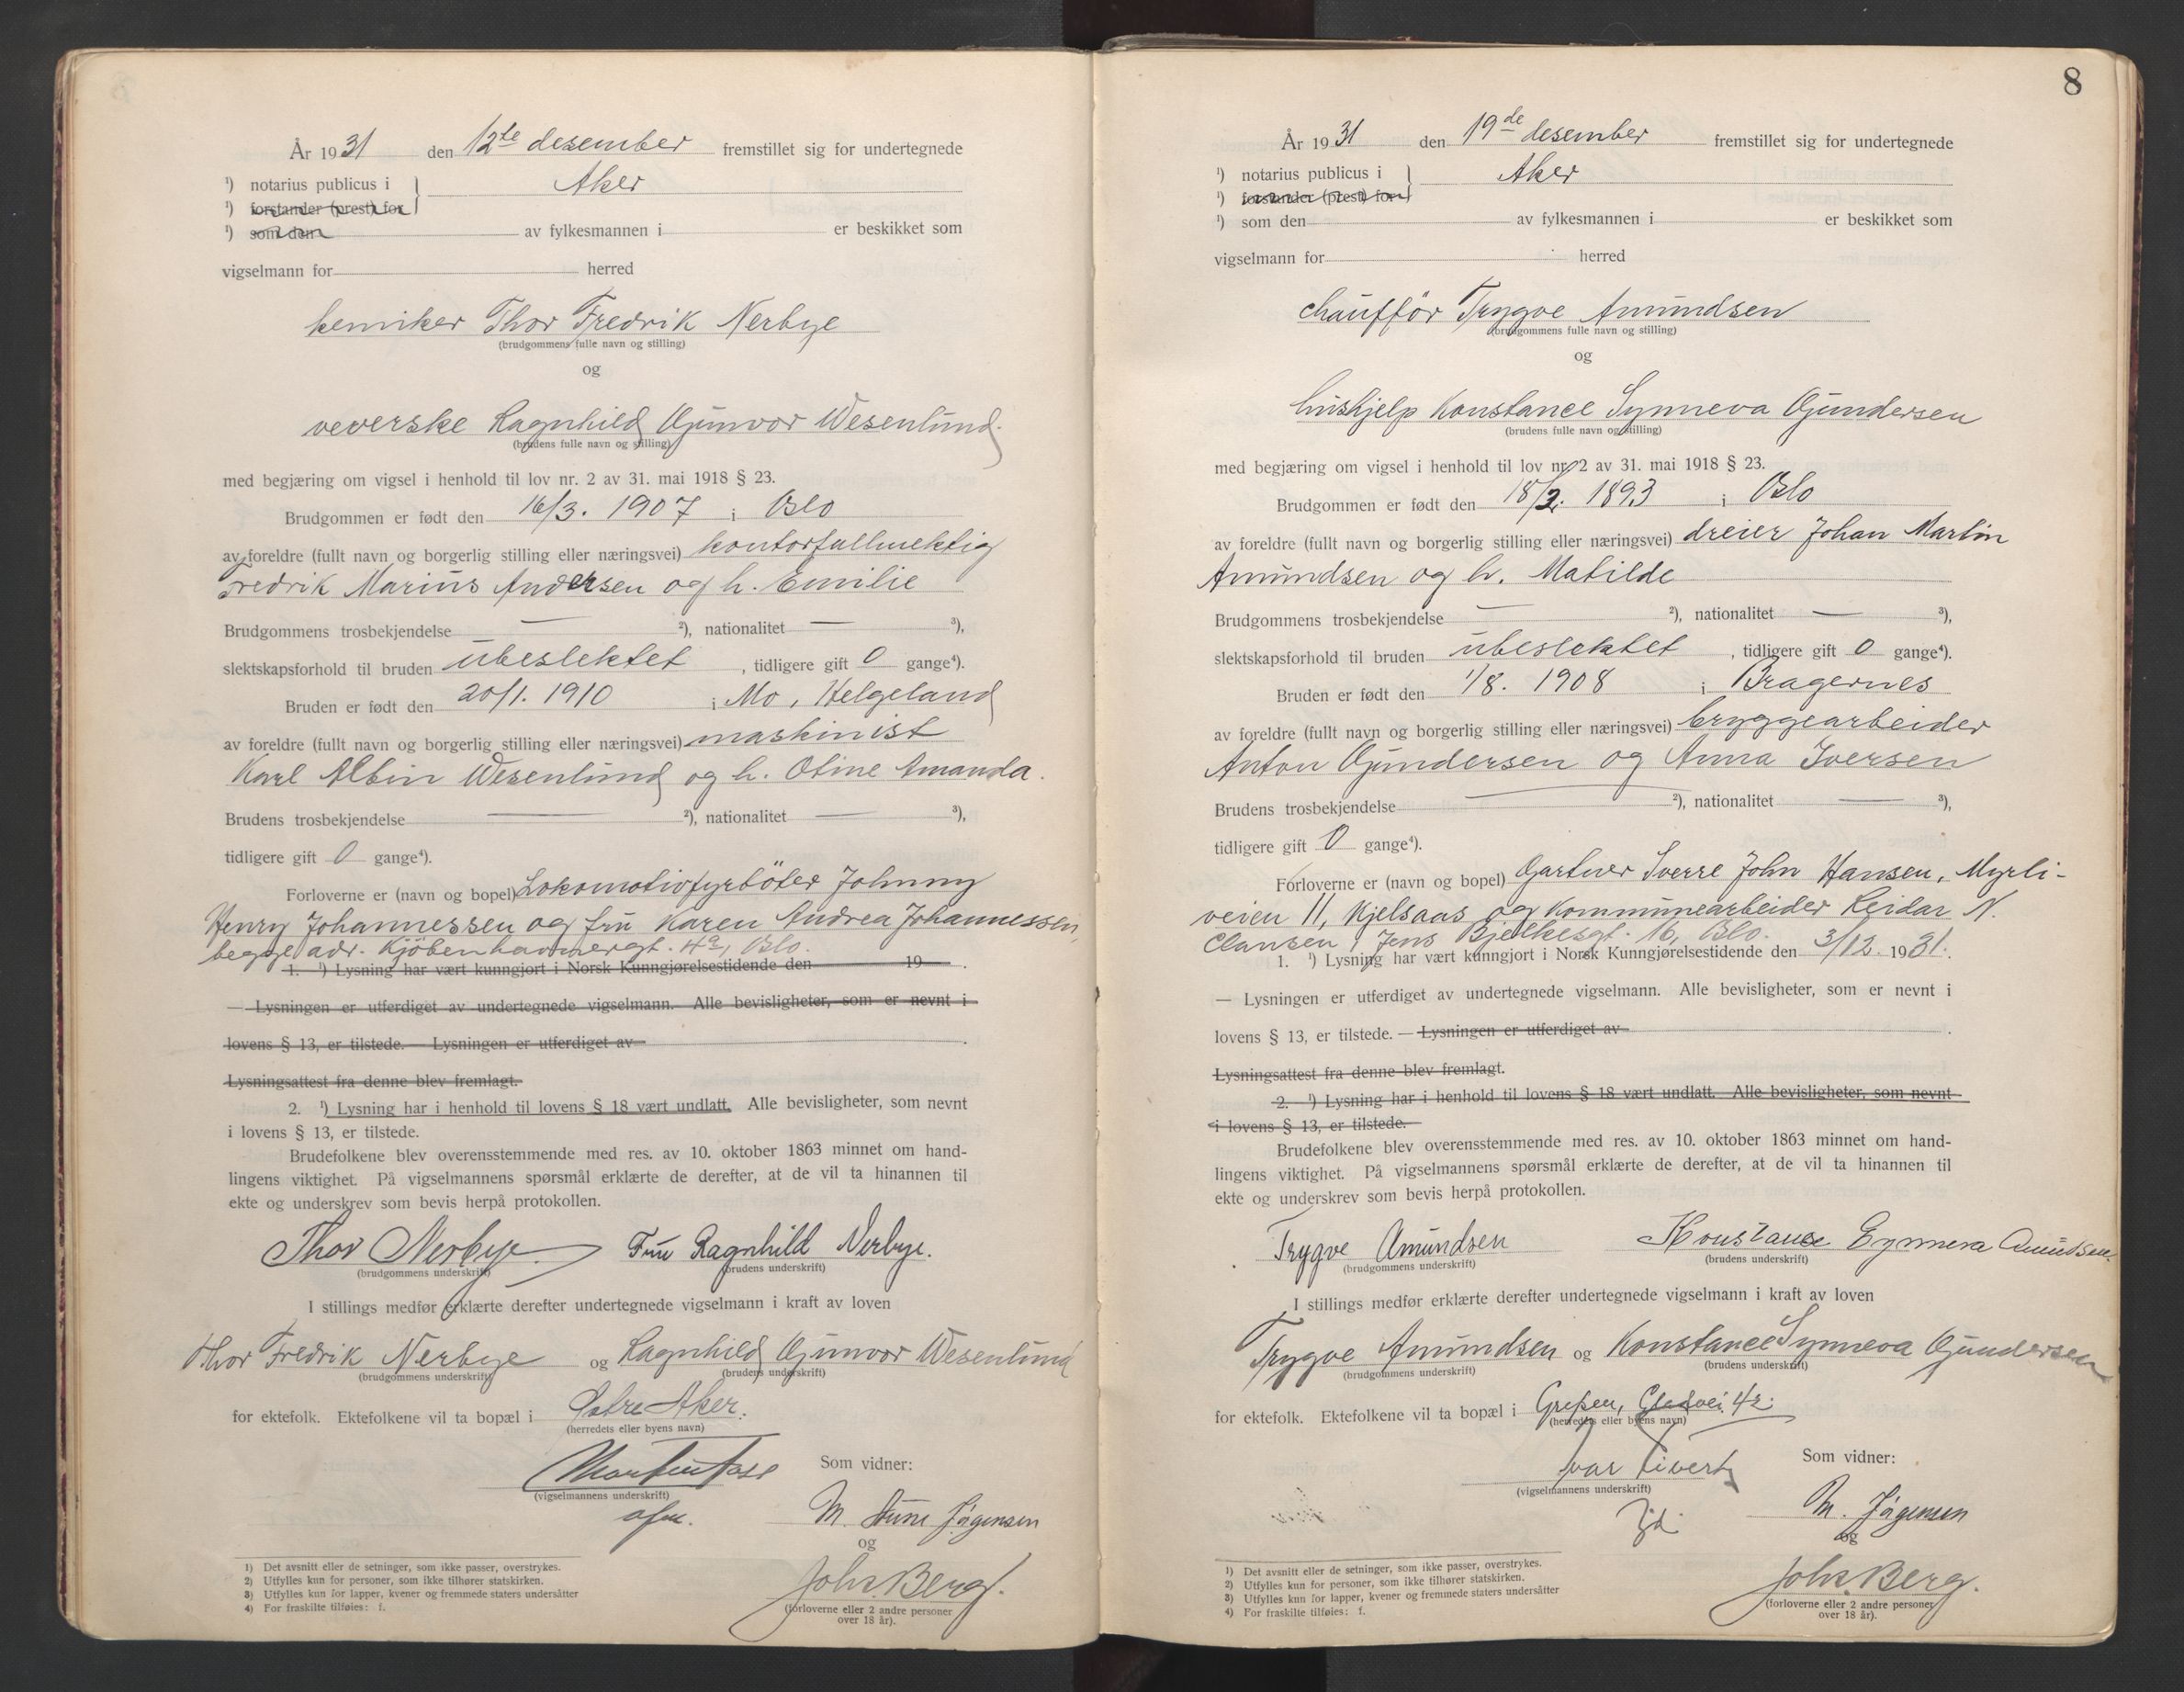 År 1931 den 12te desember fremstillet sig for undertegnede
1) notarius publicus i } Aker
1) forstander (prest) for
1) som den av fylkesmannen i er beskikket som
vigselmann for herred
kemiker Thor Fredrik Nerbye
(brudgommens fulle navn og stilling)
og
veverske Ragnhild Gunvor Wesenlund.
(brudens fulle navn og stilling)
med begjæring om vigsel i henhold til lov nr. 2 av 31. mai 1918 § 23.
Brudgommen er født den 16/3. 1907 i Oslo
av foreldre (fullt navn og borgerlig stilling eller næringsvei) kontorfullmektig
Fredrik Marius Andersen og h. Emilie
Brudgommens trosbekjendelse — 2), nationalitet — 3),
slektskapsforhold til bruden ubeslektet, tidligere gift 0 gange4).
Bruden er født den 20/1. 1910 i Mo, Helgeland
av foreldre (fullt navn og borgerlig stilling eller næringsvei) maskinist
Karl Albin Wesenlund og h. Otine Amanda.
Brudens trosbekjendelse — 2), nationalitet — 3),
tidligere gift 0 gange4).
Forloverne er (navn og bopel) Lokomotivfyrböter Johnny
Henry Johannessen og fru Karen Andrea Johannessen,
begge adr. Kjöbenhavnergt. 4a, Oslo.
1. 1) Lysning har vært kunngjort i Norsk Kunngjørelsestidende den 19 .
— Lysningen er utferdiget av undertegnede vigselmann. Alle bevisligheter, som er nevnt i
lovens § 13, er tilstede. — Lysningen er utferdiget av .
Lysningsattest fra denne blev fremlagt.
2. 1) Lysning har i henhold til lovens § 18 vært undlatt. Alle bevisligheter, som nevnt
i lovens § 13, er tilstede.
Brudefolkene blev overensstemmende med res. av 10. oktober 1863 minnet om hand-
lingens viktighet. På vigselmannens spørsmål erklærte de derefter, at de vil ta hinannen til
ekte og underskrev som bevis herpå protokollen.
Thor Nerbye. Fru Ragnhild Nerbye.
(brudgommens underskrift) (brudens underskrift)
I stillings medfør erklærte derefter undertegnede vigselmann i kraft av loven
Thor Fredrik Nerbye og Ragnhild Gunvor Wesenlund
(brudgommens underskrift) (brudens underskrift)
for ektefolk. Ektefolkene vil ta bopæl i Østre Aker.
(herredets eller byens navn)
Som vidner:
(vigselmannens underskrift)
M. Jörgensen
og
Johs. Berg.
(forloverne eller 2 andre personer
over 18 år).
1) Det avsnitt eller de setninger, som ikke passer, overstrykes.
2) Utfylles kun for personer, som ikke tilhører statskirken.
3) Utfylles kun for lapper, kvener og fremmede staters undersåtter
4) For fraskilte tilføies: f.
8
År 1931 den 19de desember fremstillet sig for undertegnede
1) notarius publicus i } Aker
1) forstander (prest) for
1) som den av fylkesmannen i er beskikket som
vigselmann for herred
chaufför Trygve Amundsen
(brudgommens fulle navn og stilling)
og
hushjelp Konstance Synneva Gundersen
(brudens fulle navn og stilling)
med begjæring om vigsel i henhold til lov nr. 2 av 31. mai 1918 § 23.
Brudgommen er født den 18/2. 1893 i Oslo
av foreldre (fullt navn og borgerlig stilling eller næringsvei) dreier Johan Martin
Amundsen og h. Matilde
Brudgommens trosbekjendelse — 2), nationalitet — 3),
slektskapsforhold til bruden ubeslektet, tidligere gift 0 gange4).
Bruden er født den 1/8. 1908 i Bragernes
av foreldre (fullt navn og borgerlig stilling eller næringsvei) bryggearbeider
Anton Gundersen og Anna Iversen
Brudens trosbekjendelse — 2), nationalitet — 3),
tidligere gift 0 gange4).
Forloverne er (navn og bopel) Gartner Sverre John Hansen, Myrli-
veien 11, Kjelsaas og Kommunearbeider Reidar N.
Clausen, Jens Bjelkesgt. 16, Oslo.
1. 1) Lysning har vært kunngjort i Norsk Kunngjørelsestidende den 3/12. 1931.
— Lysningen er utferdiget av undertegnede vigselmann. Alle bevisligheter, som er nevnt i
lovens § 13, er tilstede. — Lysningen er utferdiget av .
Lysningsattest fra denne blev fremlagt.
2. 1) Lysning har i henhold til lovens § 18 vært undlatt. Alle bevisligheter, som nevnt
i lovens § 13, er tilstede.
Brudefolkene blev overensstemmende med res. av 10. oktober 1863 minnet om hand-
lingens viktighet. På vigselmannens spørsmål erklærte de derefter, at de vil ta hinannen til
ekte og underskrev som bevis herpå protokollen.
Trygve Amundsen Konstance Synneva Amundsen.
(brudgommens underskrift) (brudens underskrift)
I stillings medfør erklærte derefter undertegnede vigselmann i kraft av loven
Trygve Amundsen og Konstance Synneva Gundersen
(brudgommens underskrift) (brudens underskrift)
for ektefolk. Ektefolkene vil ta bopæl i Grefsen,
(herredets eller byens navn)
Som vidner:
(vigselmannens underskrift)
M. Jörgensen
og
Johs. Berg.
(forloverne eller 2 andre personer
over 18 år).
1) Det avsnitt eller de setninger, som ikke passer, overstrykes.
2) Utfylles kun for personer, som ikke tilhører statskirken.
3) Utfylles kun for lapper, kvener og fremmede staters undersåtter
4) For fraskilte tilføies: f.